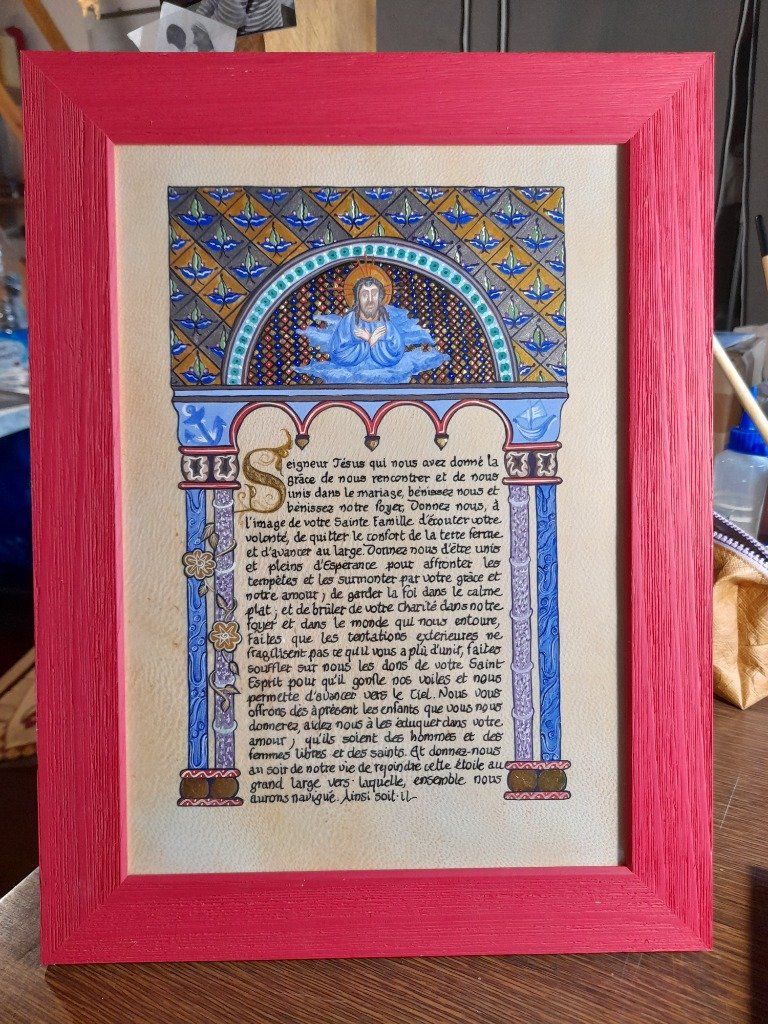 Seigneur Jésus qui nous avez donné la
grâce de nous rencontrer et de nous
unis dans le mariage, bénissez nous et
bénissez notre foyer, Donnez nous, à
l'image de votre Sainte Famille d'écouter votre
volonté, de quitter le confort de la terre ferme
et d'avancer au large. Donnez nous d'être unis
et pleins d'Espérance pour affronter les
tempêtes et les surmonter par votre grâce et
notre amour ; de garder la foi dans le calme
plat ; et de brûler de votre charité dans notre
foyer et dans le monde qui nous entoure,
Faites que les tentations extérieures ne
fragilisent pas ce qu'il vous a plû d'unir, faites
souffler sur nous les dons de votre Saint
Esprit pour qu'il gonfle nos voiles et nous
permette d'avancer vers le Ciel. Nous vous
offrons dès à présent les enfants que vous nous
donnerez, aidez nous à les éduquer dans votre
amour ; qu'ils soient des hommes et des
femmes libres et des saints. Et donnez-nous
au soir de notre vie de rejoindre cette étoile au
grand large vers laquelle, ensemble nous
aurons navigué. Ainsi soit-il